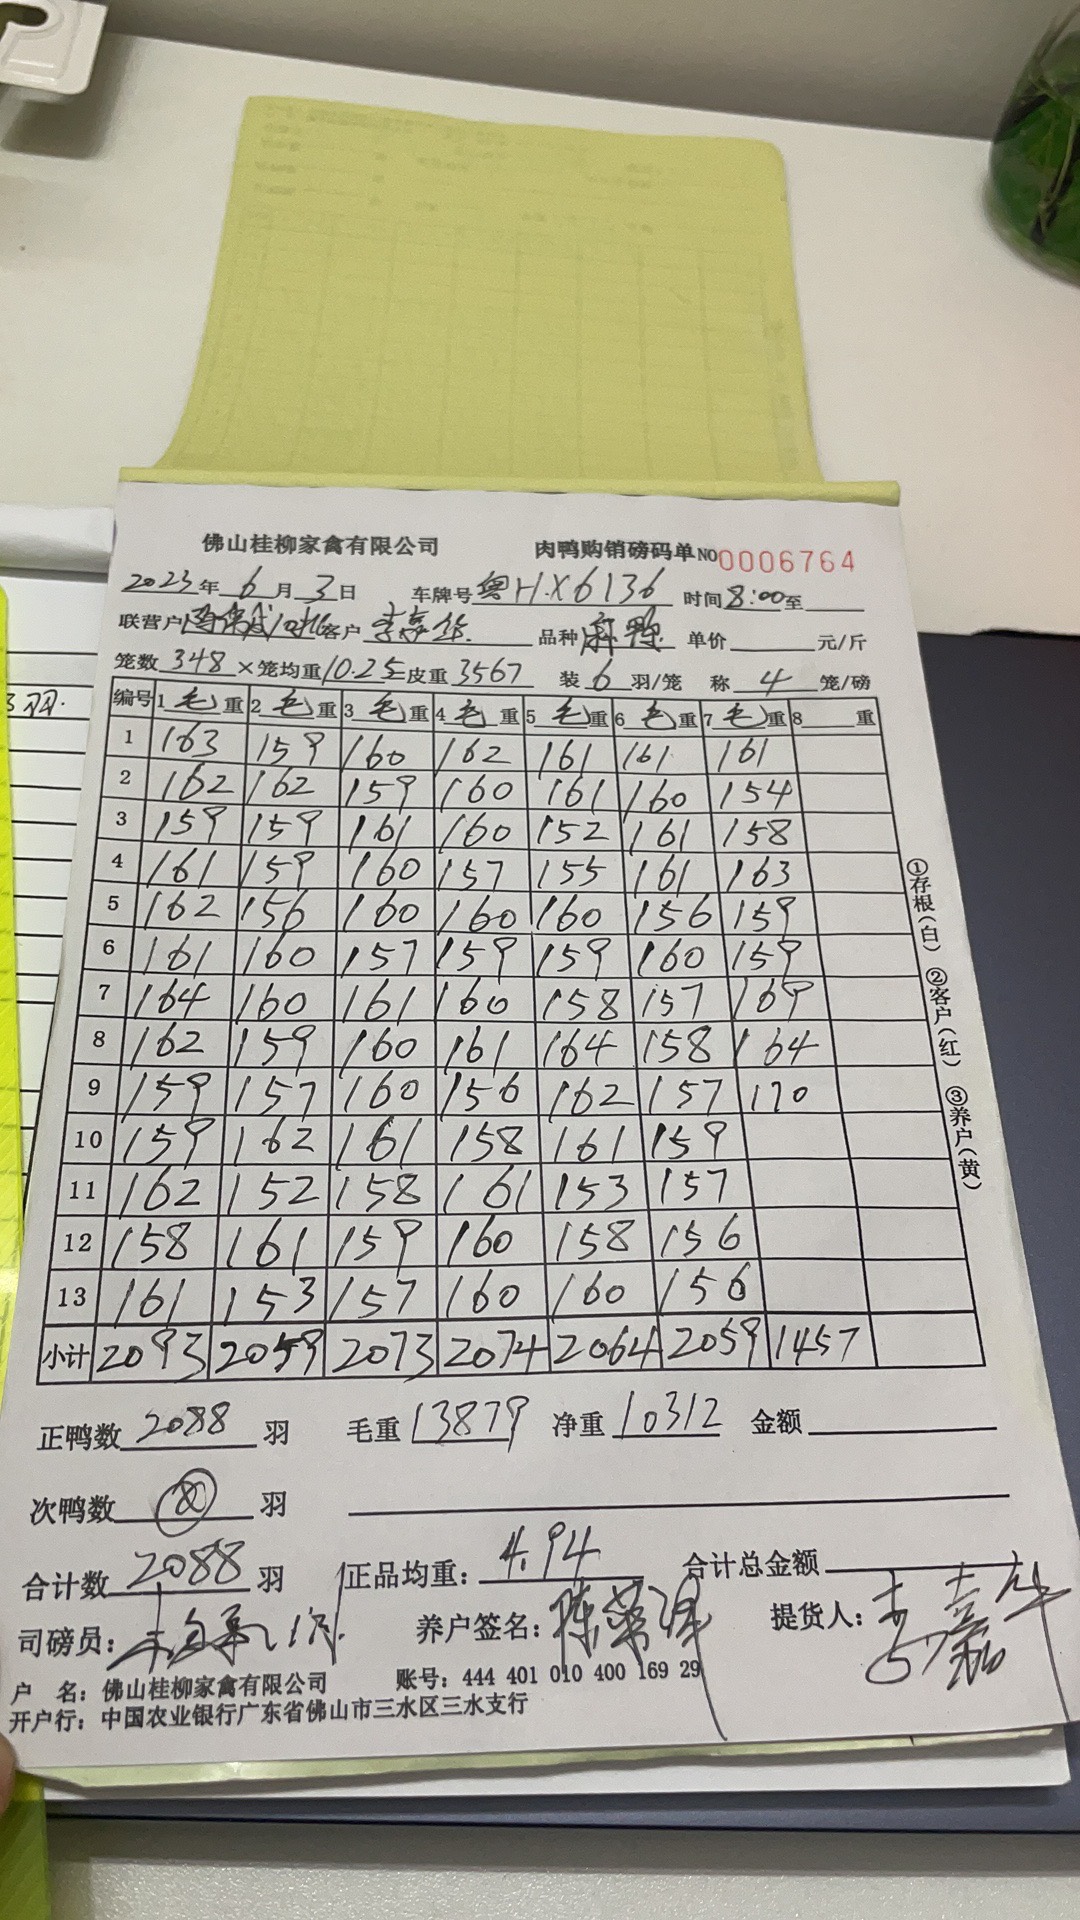 佛山桂柳家禽有限公司 肉鸭购销磅码单 NO0006764
2023年6月3日 车牌号粤H.X6136 时间8:00至
联营户 客户李嘉华 品种麻鸭 单价 元/斤
笼数348×笼均重10.25皮重3567 装6羽/笼 称4笼/磅
编号 1毛重 2毛重 3毛重 4毛重 5毛重 6毛重 7毛重 8 重
1 163 159 160 162 161 161 161
2 162 162 159 160 161 160 154
3 159 159 161 160 152 161 158
4 161 159 160 157 155 161 163
5 162 156 160 160 160 156 159
6 161 160 157 159 159 160 159
7 164 160 161 160 158 157 169
8 162 159 160 161 164 158 164
9 159 157 160 156 162 157 170
10 159 162 161 158 161 159
11 162 152 158 161 153 157
12 158 161 159 160 158 156
13 161 153 157 160 160 156
小计 2093 2059 2073 2074 2064 2059 1457
正鸭数2088羽 毛重13879 净重10312 金额
次鸭数 羽
合计数2088羽 正品均重:4.94 合计总金额
司磅员: 养户签名:陈荣 提货人:李嘉华
户 名:佛山桂柳家禽有限公司 账号:444 401 010 400 169 29
开户行:中国农业银行广东省佛山市三水区三水支行
①存根(白) ②客户(红) ③养户(黄)
3羽.